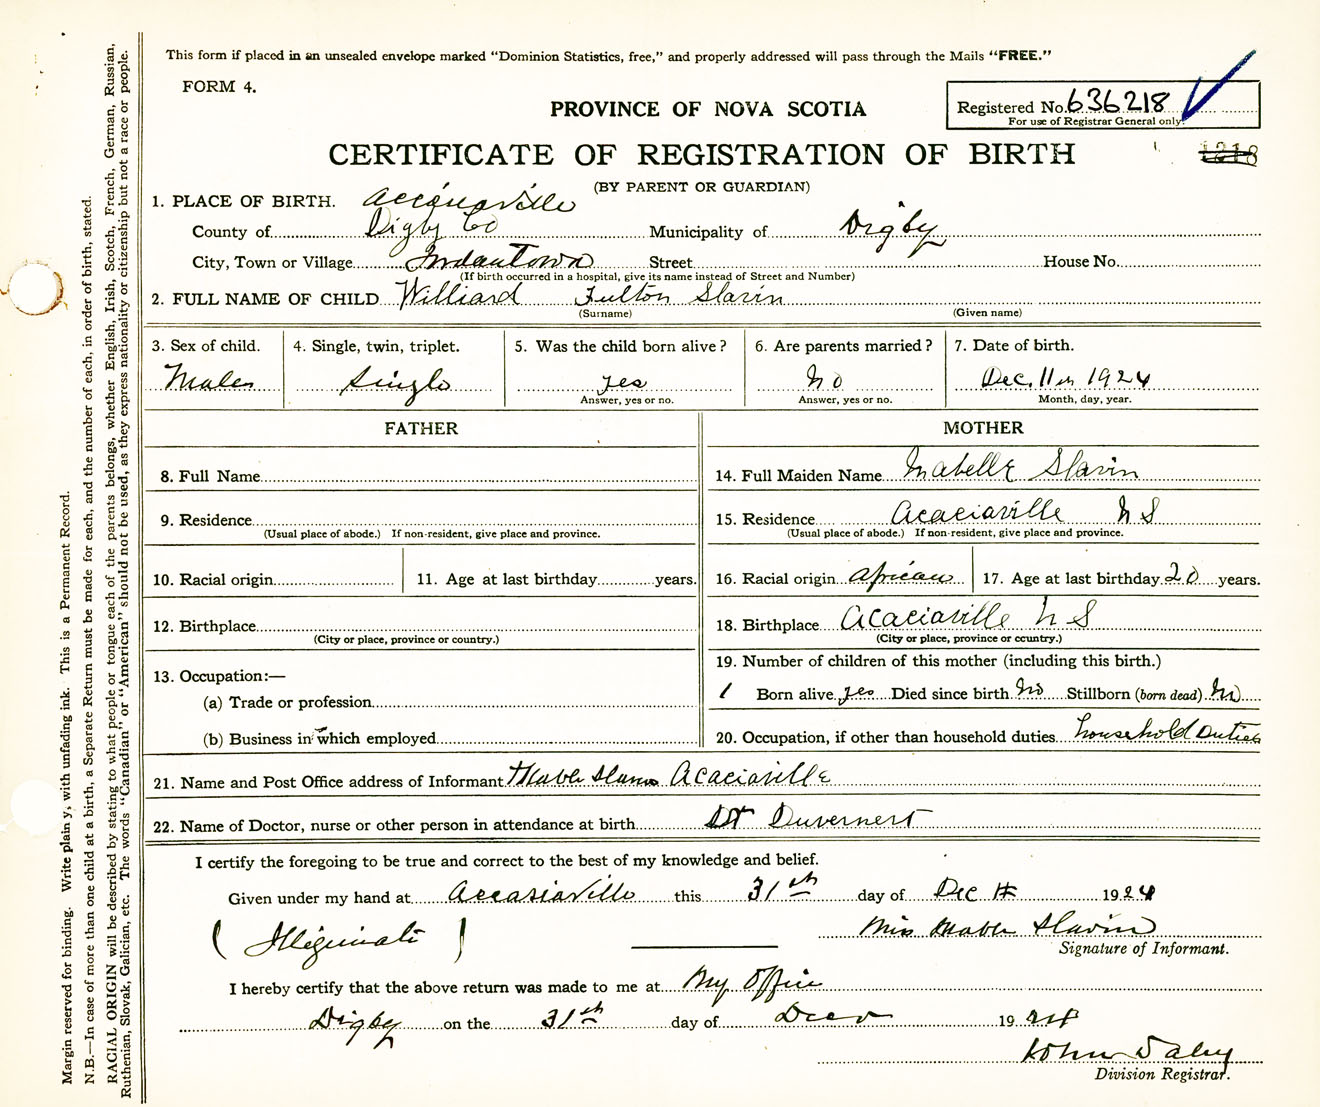 This form if placed in an unsealed envelope marked "Dominion Statistics, free," and properly addressed will pass through the Mails "FREE."
FORM 4.
PROVINCE OF NOVA SCOTIA
Registered No. 636218
For use of Registrar General only.
CERTIFICATE OF REGISTRATION OF BIRTH
1218
(BY PARENT OR GUARDIAN)
1. PLACE OF BIRTH.
County of Digby Co Municipality of Digby
City, Town or Village Jordantown Street House No.
(If birth occurred in a hospital, give its name instead of Street and Number)
2. FULL NAME OF CHILD Williard Fulton Slavin
(Surname) (Given name)
3. Sex of child. 4. Single, twin, triplet. 5. Was the child born alive? 6. Are parents married? 7. Date of birth.
Males single yes No Dec. 11th 1924
Answer, yes or no. Answer, yes or no. Month, day, year.
FATHER MOTHER
8. Full Name 14. Full Maiden Name Mabelle Slavin
9. Residence 15. Residence Acaciaville N S
(Usual place of abode.) If non-resident, give place and province. (Usual place of abode.) If non-resident, give place and province.
10. Racial origin 11. Age at last birthday years. 16. Racial origin African 17. Age at last birthday 20 years.
12. Birthplace 18. Birthplace Acaciaville N S
(City or place, province or country.) (City or place, province or country.)
19. Number of children of this mother (including this birth.)
13. Occupation:—
1 Born alive yes Died since birth No Stillborn (born dead) No
(a) Trade or profession
(b) Business in which employed 20. Occupation, if other than household duties household Duties
21. Name and Post Office address of Informant Mable Slavin Acaciaville
22. Name of Doctor, nurse or other person in attendance at birth Dr Duvernert
I certify the foregoing to be true and correct to the best of my knowledge and belief.
Given under my hand at Accasiaville this 31th day of Dec 1924
Miss Mable Slavin
Signature of Informant.
I hereby certify that the above return was made to me at My Office
Digby on the 31th day of 1924
John Daley
Division Registrar.
Margin reserved for binding. Write plainy, with unfading ink. This is a Permanent Record.
N.B.—In case of more than one child at a birth, a Separate Return must be made for each, and the number of each, in order of birth, stated.
RACIAL ORIGIN will be described by stating to what people or tongue each of the parents belongs, whether English, Irish, Scotch, French, German, Russian,
Ruthenian, Slovak, Galician, etc. The words "Canadian" or "American" should not be used, as they express nationality or citizenship but not a race or people.